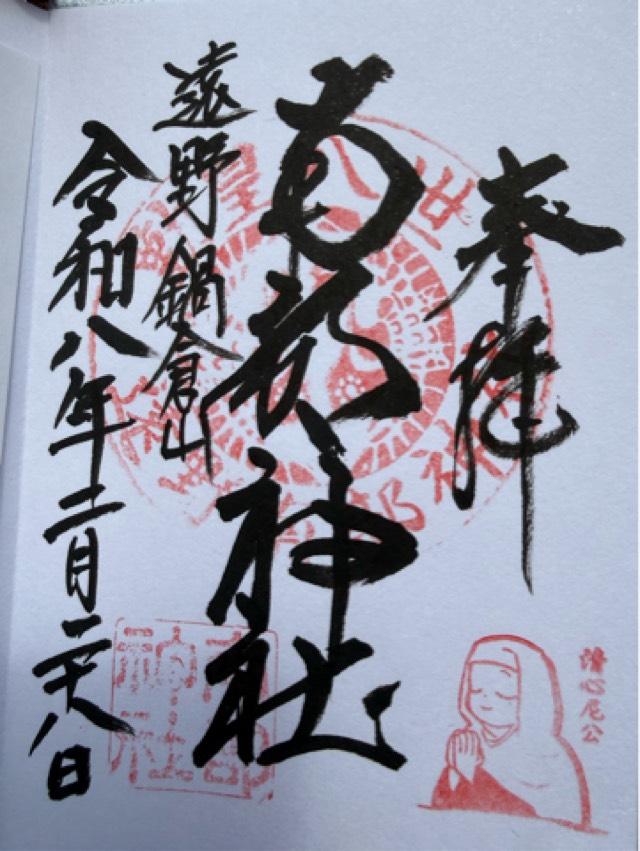 奉拝
南部神社
遠野鍋倉山
令和八年二月二十八日
清心尼公